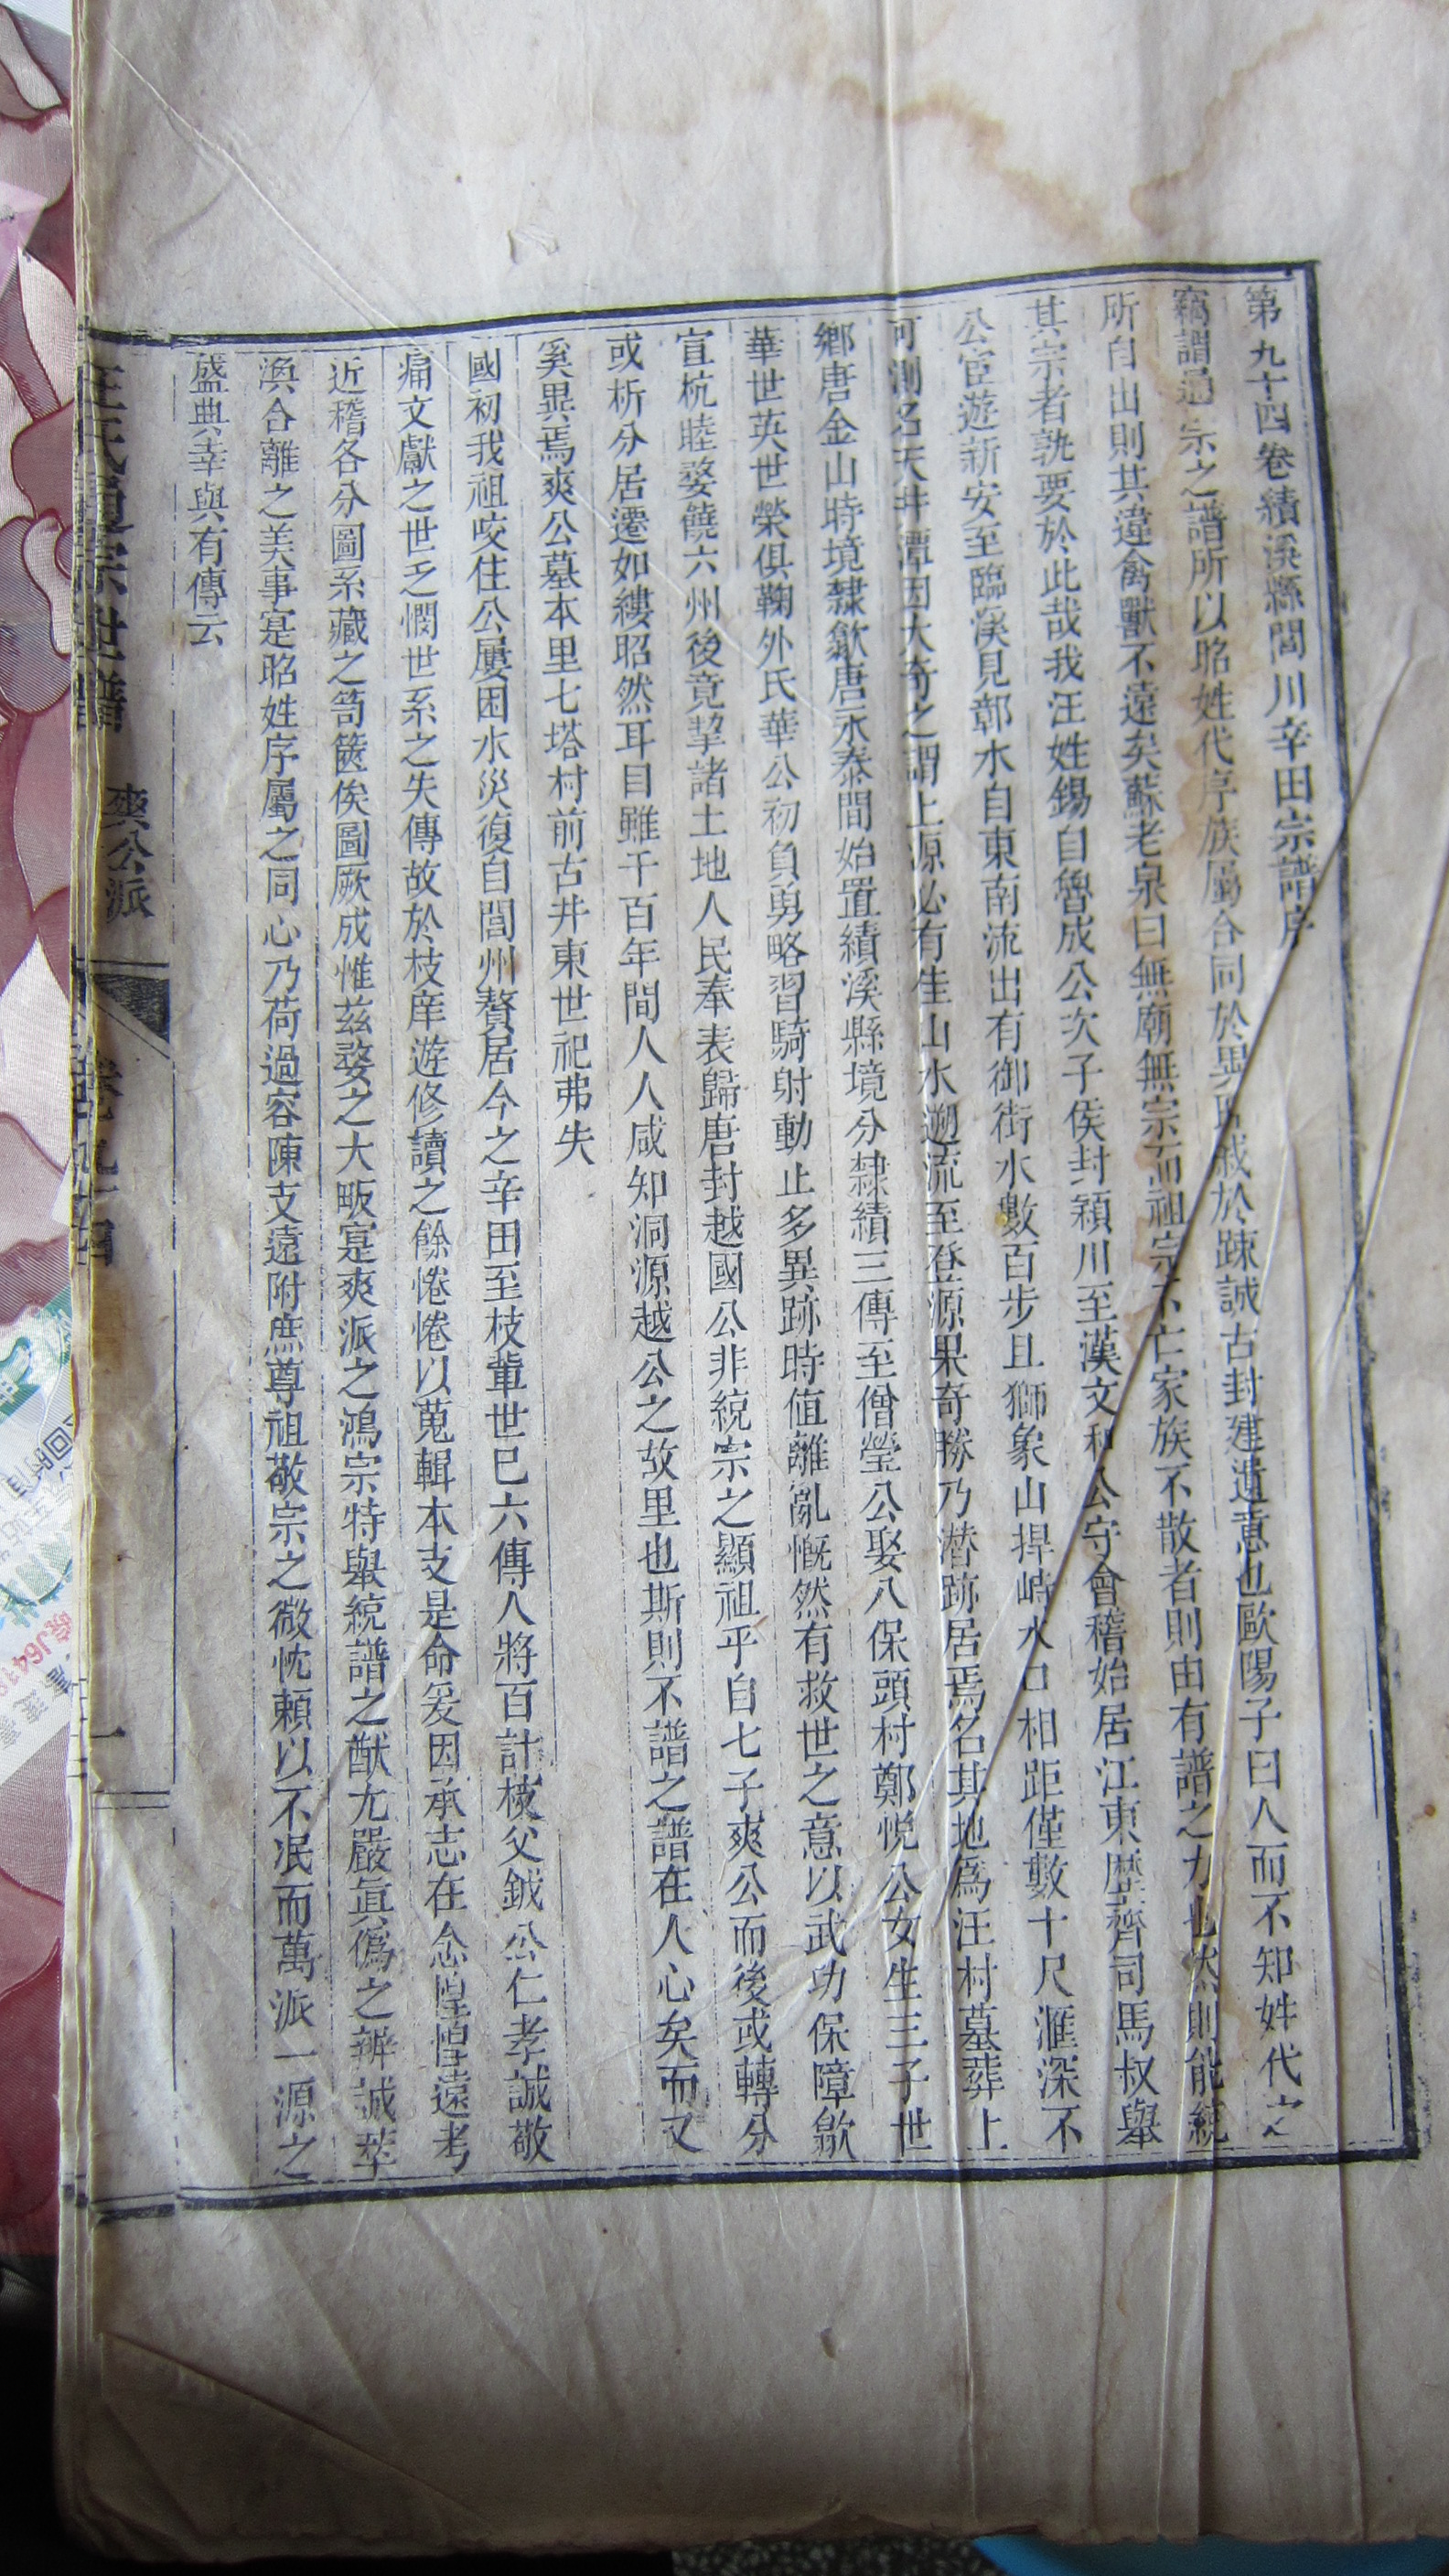 第九十四卷績溪縣閭川辛田宗譜序
竊謂通宗之譜所以昭姓代序族屬合同於異聯戚於踈誠古封建遺意也歐陽子曰人而不知姓代之
所自出則其違禽獸不遠矣蘇老泉曰無廟無宗而祖宗不亡家族不散者則由有譜之力也然則能統
其宗者孰要於此哉我汪姓錫自魯成公次子侯封潁川至漢文和公守會稽始居江東歷齊司馬叔舉
公宦遊新安至臨溪見鄣水自東南流出有御街水數百步且獅象山捍峙水口相距僅數十尺滙深不
可測名天井潭因大奇之謂上源必有佳山水遡流至登源果奇勝乃潛跡居焉名其地爲汪村墓葬上
鄉唐金山時境隸歙唐永泰間始置績溪縣境分隸績三傳至僧瑩公娶八保頭村鄭悅公女生三子世
華世英世榮俱鞠外氏華公初負勇略習騎射動止多異跡時值離亂慨然有救世之意以武功保障歙
宣杭睦婺饒六州後竟挈諸土地人民奉表歸唐封越國公非統宗之顯祖乎自七子爽公而後或轉分
或析分居遷如縷昭然耳目雖千百年間人人咸知洞源越公之故里也斯則不譜之譜在人心矣而又
奚異焉爽公墓本里七塔村前古井東世祀弗失
國初我祖咬住公屢困水災復自閭州贅居今之辛田至枝輩世巳六傳人將百計檙父鉞公仁孝誠敬
痛文獻之世乏憫世系之失傳故於枝庠遊修讀之餘惓惓以蒐輯本支是命爰因承志在念惶惶遠考
近稽各分圖系藏之笥篋俟圖厥成惟玆婺之大畈寔爽派之鴻宗特舉統譜之猷尤嚴眞僞之辨誠萃
渙合離之美事寔昭姓序屬之同心乃荷過容陳支遠附庶尊祖敬宗之微忱頼以不泯而萬派一源之
盛典幸與有傳云
汪氏通宗世譜 爽公派 卷九十四 一